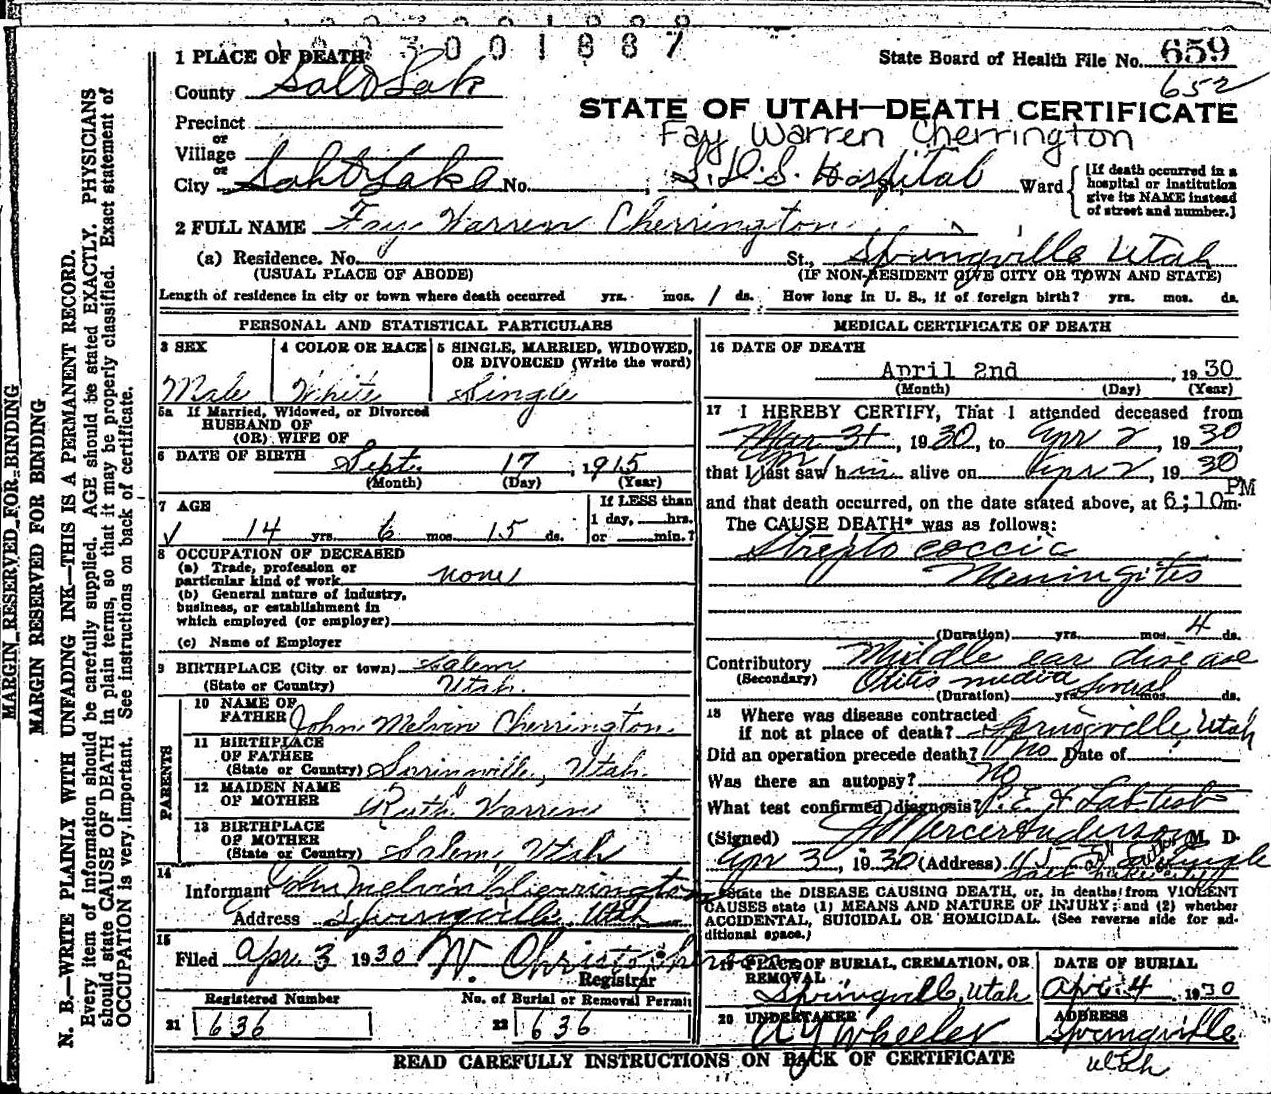 1003001887
1 PLACE OF DEATH
State Board of Health File No. 659
652
County Salt Lake
STATE OF UTAH—DEATH CERTIFICATE
Precinct
Fay Warren Cherrington
or
Village
or
City Salt Lake No. , L.D.S. Hospital St., Ward
[If death occurred in a hospital or institution give its NAME instead of street and number.]
2 FULL NAME Fay Warren Cherrington
(a) Residence. No. St., Springville Utah
(USUAL PLACE OF ABODE) (IF NON-RESIDENT GIVE CITY OR TOWN AND STATE)
Length of residence in city or town where death occurred yrs. mos. 1 ds. How long in U. S., if of foreign birth? yrs. mos. ds.
PERSONAL AND STATISTICAL PARTICULARS
3 SEX 4 COLOR OR RACE 5 SINGLE, MARRIED, WIDOWED,
OR DIVORCED (Write the word)
Male White Single
5a If Married, Widowed, or Divorced
HUSBAND OF
(OR) WIFE OF
6 DATE OF BIRTH Sept. 17, 1915
(Month) (Day) (Year)
7 AGE If LESS than
1 day, hrs.
14 yrs. 6 mos. 15 ds. or min.?
8 OCCUPATION OF DECEASED
(a) Trade, profession or
particular kind of work none
(b) General nature of industry,
business, or establishment in
which employed (or employer)
(c) Name of Employer
9 BIRTHPLACE (City or town) Salem
(State or Country) Utah.
PARENTS
10 NAME OF
FATHER John Melvin Cherrington.
11 BIRTHPLACE
OF FATHER
(State or Country) Springville, Utah.
12 MAIDEN NAME
OF MOTHER Ruth Warren
13 BIRTHPLACE
OF MOTHER
(State or Country) Salem, Utah
14
Informant John Melvin Cherrington
Address Springville, Utah
15
Filed Apr. 3 1930 W. Christopherson
Registrar
Registered Number No. of Burial or Removal Permit
21 636 22 636
MEDICAL CERTIFICATE OF DEATH
16 DATE OF DEATH
April 2nd , 1930
(Month) (Day) (Year)
17 I HEREBY CERTIFY, That I attended deceased from
Mar 31, 1930, to Apr 2, 1930,
that I last saw him alive on Apr 2, 1930
and that death occurred, on the date stated above, at 6;10 PM m.
The CAUSE DEATH* was as follows:
Strepto coccic
Meningitis
(Duration) yrs. mos. 4 ds.
Contributory Middle ear disease
(Secondary) Otitis media
(Duration) yrs. several mos. ds.
18 Where was disease contracted
if not at place of death? Springville, Utah
Did an operation precede death? no Date of
Was there an autopsy? No
What test confirmed diagnosis? P.E. & Lab tests
(Signed) J Mercer Anderson M D.
Apr 3, 1930 (Address)
*State the DISEASE CAUSING DEATH, or, in deaths from VIOLENT
CAUSES state (1) MEANS AND NATURE OF INJURY; and (2) whether
ACCIDENTAL, SUICIDAL OR HOMICIDAL. (See reverse side for ad-
ditional space.)
19 PLACE OF BURIAL, CREMATION, OR REMOVAL DATE OF BURIAL
Springville, Utah Apr. 4 1930
20 UNDERTAKER ADDRESS
A Y Wheeler Springville
Utah
READ CAREFULLY INSTRUCTIONS ON BACK OF CERTIFICATE
MARGIN RESERVED FOR BINDING
MARGIN RESERVED FOR BINDING
N. B.—WRITE PLAINLY WITH UNFADING INK—THIS IS A PERMANENT RECORD.
Every item of information should be carefully supplied. AGE should be stated EXACTLY. PHYSICIANS
should state CAUSE OF DEATH in plain terms, so that it may be properly classified. Exact statement of
OCCUPATION is very important. See instructions on back of certificate.